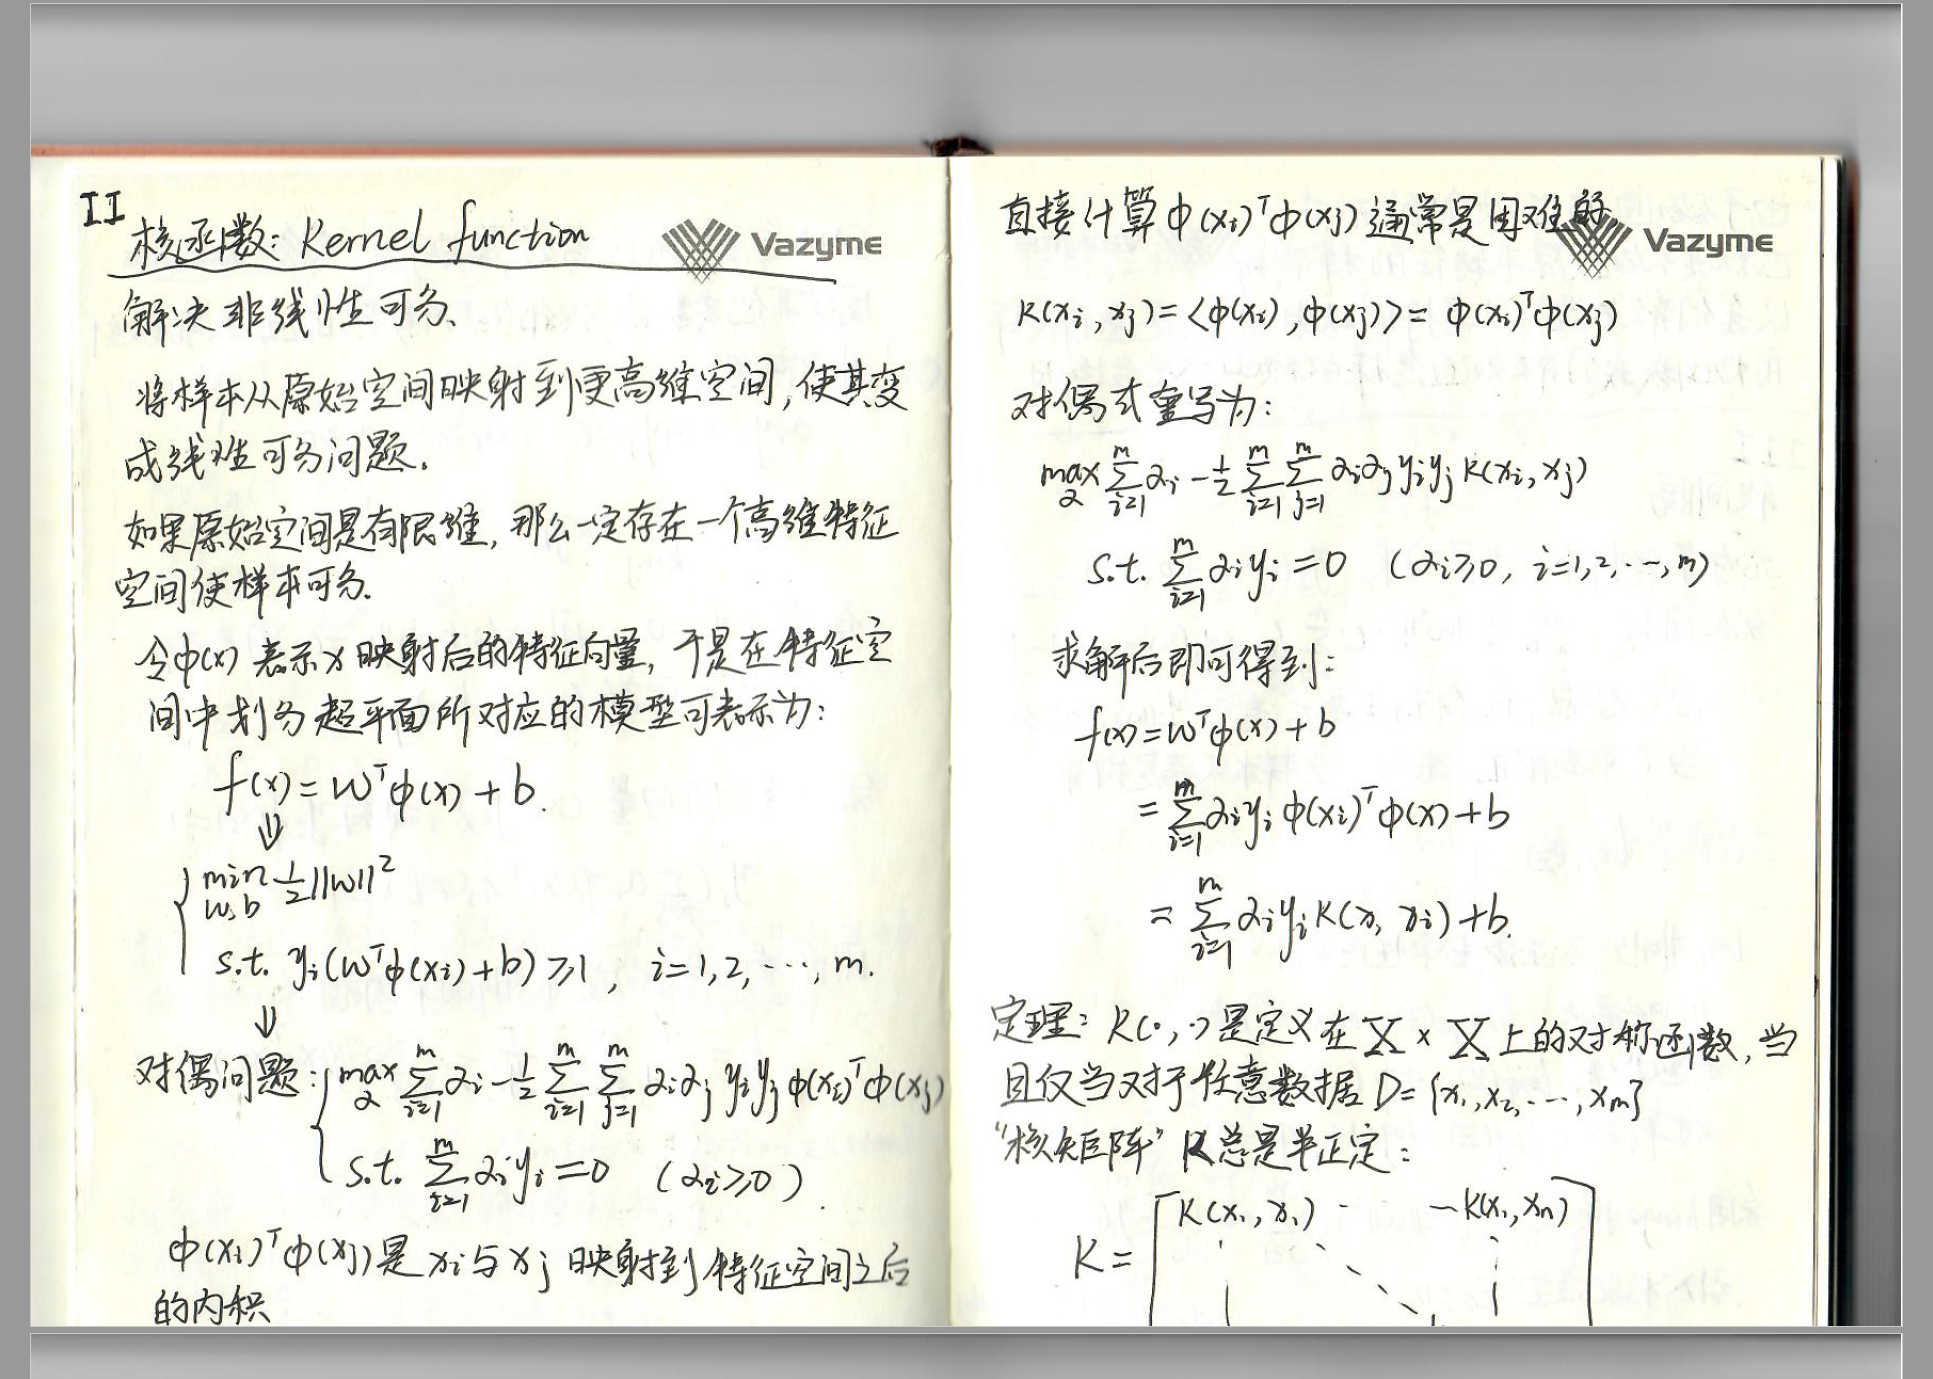 II
核函数: Kernel function
Vazyme
解决非线性可分、
将样本从原始空间映射到更高维空间,使其变
成线性可分问题。
如果原始空间是有限维,那么一定存在一个高维特征
空间使样本可分.
令φ(x) 表示x映射后的特征向量,于是在特征空
间中划分超平面所对应的模型可表示为:
f(x) = wᵀφ(x) + b.
⇓
min ½||w||²
w,b
s.t. yᵢ(wᵀφ(xᵢ)+b) ⩾1, i=1,2,⋯,m.
⇓
对偶问题: max α ∑ᵢ₌₁ᵐ αᵢ - ½ ∑ᵢ₌₁ᵐ ∑ⱼ₌₁ᵐ αᵢαⱼ yᵢyⱼ φ(xᵢ)ᵀφ(xⱼ)
s.t. ∑ᵢ₌₁ᵐ αᵢyᵢ=0 (αᵢ⩾0).
φ(xᵢ)ᵀφ(xⱼ)是xᵢ与xⱼ映射到特征空间之后
的内积
直接计算φ(xᵢ)ᵀφ(xⱼ)通常是困难的.
Vazyme
K(xᵢ, xⱼ)=⟨φ(xᵢ),φ(xⱼ)⟩= φ(xᵢ)ᵀφ(xⱼ)
对偶式重写为:
max α ∑ᵢ₌₁ᵐ αᵢ - ½ ∑ᵢ₌₁ᵐ ∑ⱼ₌₁ᵐ αᵢαⱼ yᵢyⱼ K(xᵢ, xⱼ)
s.t. ∑ᵢ₌₁ᵐ αᵢyᵢ =0 (αᵢ⩾0, i=1,2,⋯,m)
求解后即可得到:
f(x)=wᵀφ(x)+b
= ∑ᵢ₌₁ᵐ αᵢyᵢ φ(xᵢ)ᵀφ(x)+b
= ∑ᵢ₌₁ᵐ αᵢyᵢK(x, xᵢ)+b.
定理: K(·,·)是定义在X × X上的对称函数,当
且仅当对于任意数据 D= {x₁,x₂,⋯,xₘ}
“核矩阵” K总是半正定:
K(x₁,x₁) - - K(x₁,xₙ)
K =